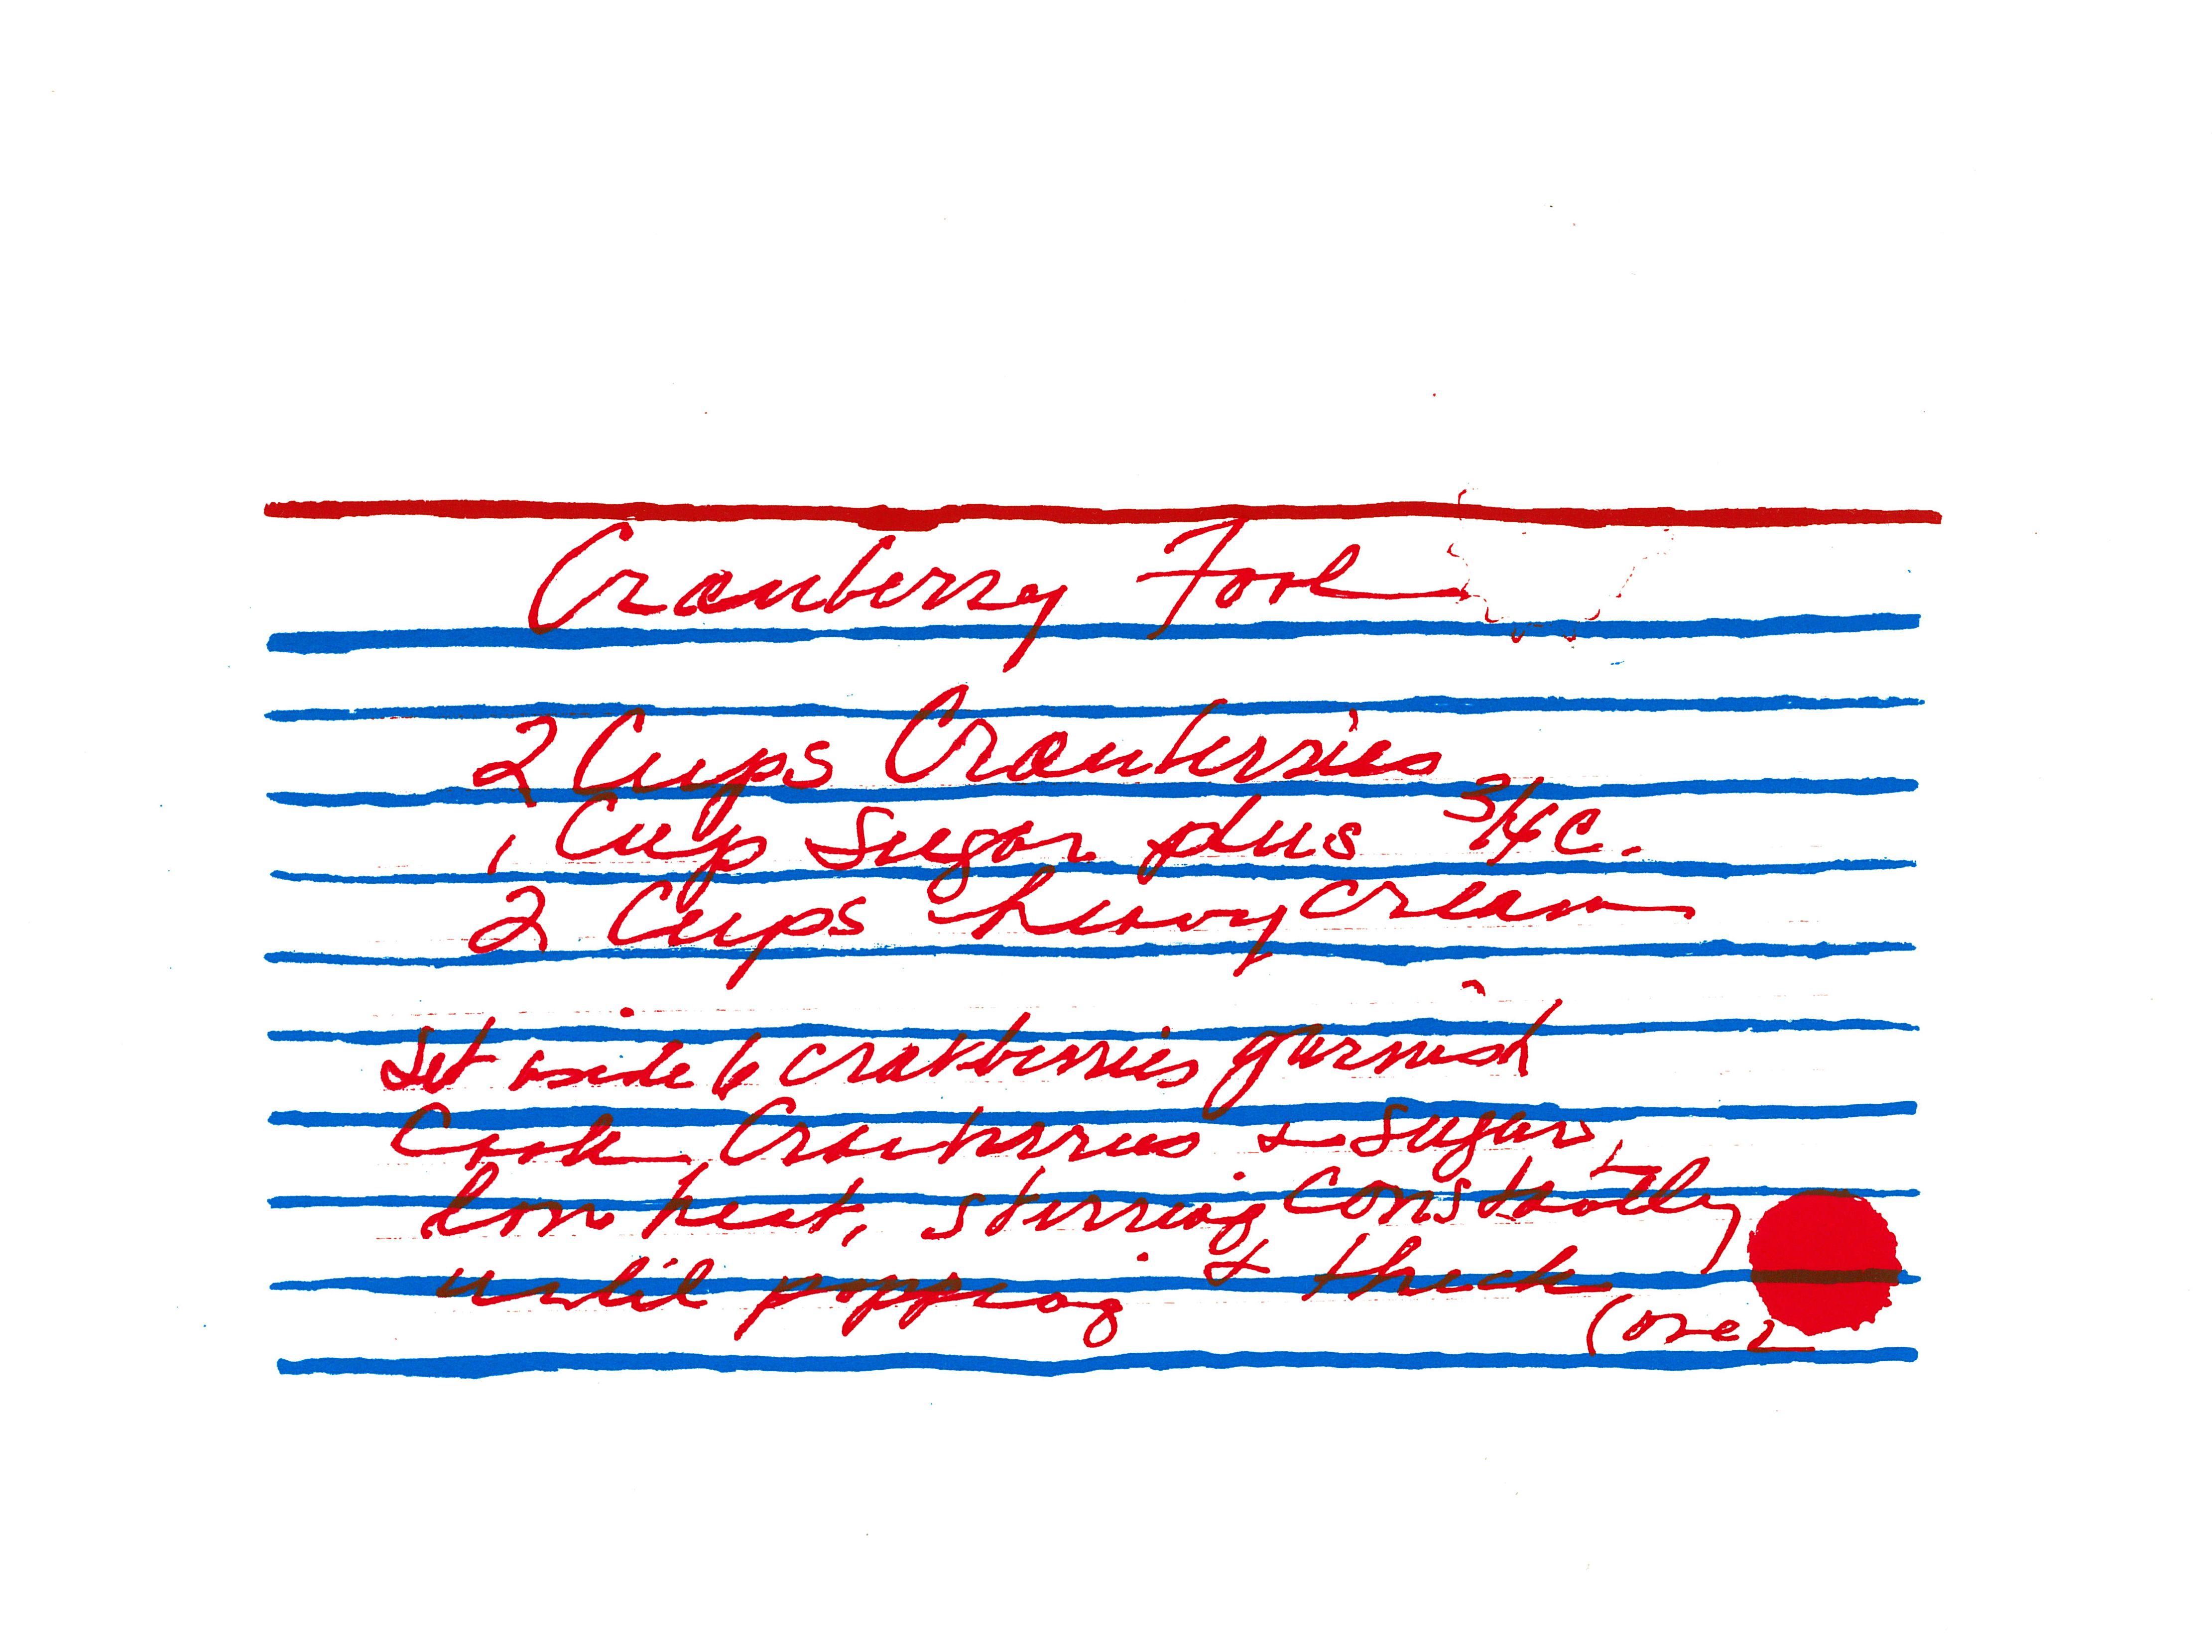 Cranberry Fool
2 Cups Cranberries
1 Cup Sugar plus 3/4 c.
2 Cups heavy cream
Set aside 6 cranberries garnish
Cook Cranberries & Sugar,
Low heat, stirring constantly
until popping & thick
(over